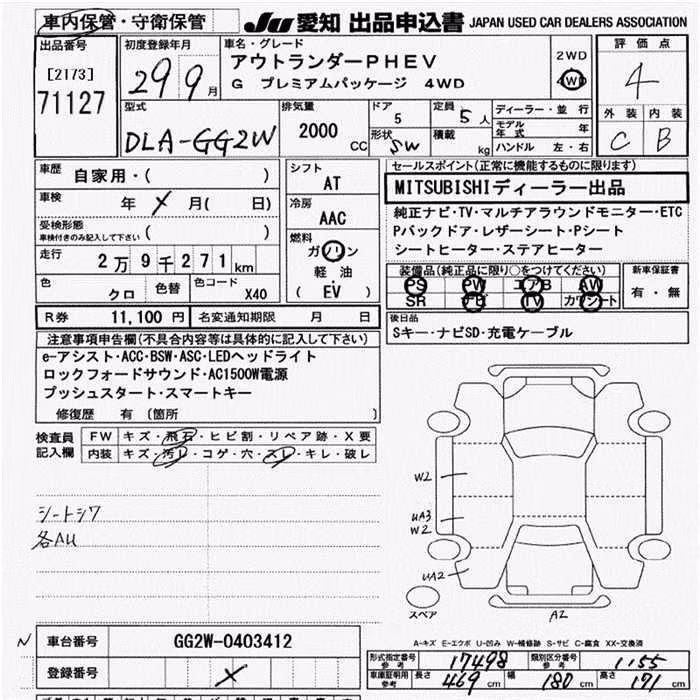 車内保管・守衛保管
JU 愛知 出品申込書 JAPAN USED CAR DEALERS ASSOCIATION
出品番号
[2173]
71127
初度登録年月
29 9月
車名・グレード
アウトランダーPHEV
G プレミアムパッケージ 4WD
2WD
4WD
評価点
4
外装 内装
C B
型式
DLA-GG2W
排気量
2000 CC
ドア
5
形状
SW
定員
5人
積載
kg
ディーラー・並行
モデル年式 年
ハンドル 左・右
車歴
自家用・( )
車検
年 X 月( 日)
受検形態
車検付きのみ記入して下さい ( )
走行
2万9千271km
色
クロ
色替
色コード
X40
シフト
AT
冷房
AAC
燃料
ガソリン
軽油
( EV )
セールスポイント(正常に機能するものに限ります)
MITSUBISHIディーラー出品
純正ナビ・TV・マルチアラウンドモニター・ETC
Pバックドア・レザーシート・Pシート
シートヒーター・ステアヒーター
装備品(純正品に限り○をつけてください)
PS PW エアB AW
SR ナビ TV カワシート
新車保証書
有・無
R券 11,100 円 名変通知期限 月 日
後日品
Sキー・ナビSD・充電ケーブル
注意事項申告欄(不具合内容等は具体的に記入して下さい)
e-アシスト・ACC・BSW・ASC・LEDヘッドライト
ロックフォードサウンド・AC1500W電源
プッシュスタート・スマートキー
修復歴 有 (箇所 )
検査員記入欄
FW キズ・飛石・ヒビ割・リペア跡・X要
内装 キズ・汚レ・コゲ・穴・スレ・キレ・破レ
シートシワ
各AU
W2
UA3
W2
UA2
スペア
A2
A-キズ E-エクボ U-凹み W-補修跡 S-サビ C-腐食 XX-交換済
N
車台番号 GG2W-0403412
登録番号 X
形式指定番号 参考 17498 類別区分番号 参考 1155
車庫証明用 参考 長さ 469 cm 幅 180 cm 高さ 171 cm